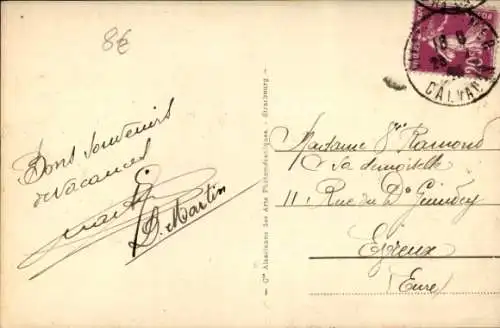 8€
Bons souvenirs
de vacances
D. Martin
Cie Alsacienne des Arts Photomécaniques - Strasbourg
CALVADOS
20
Madame Vve Ramond
& sa demoiselle
11 Rue du Dr
Evreux
(Eure)